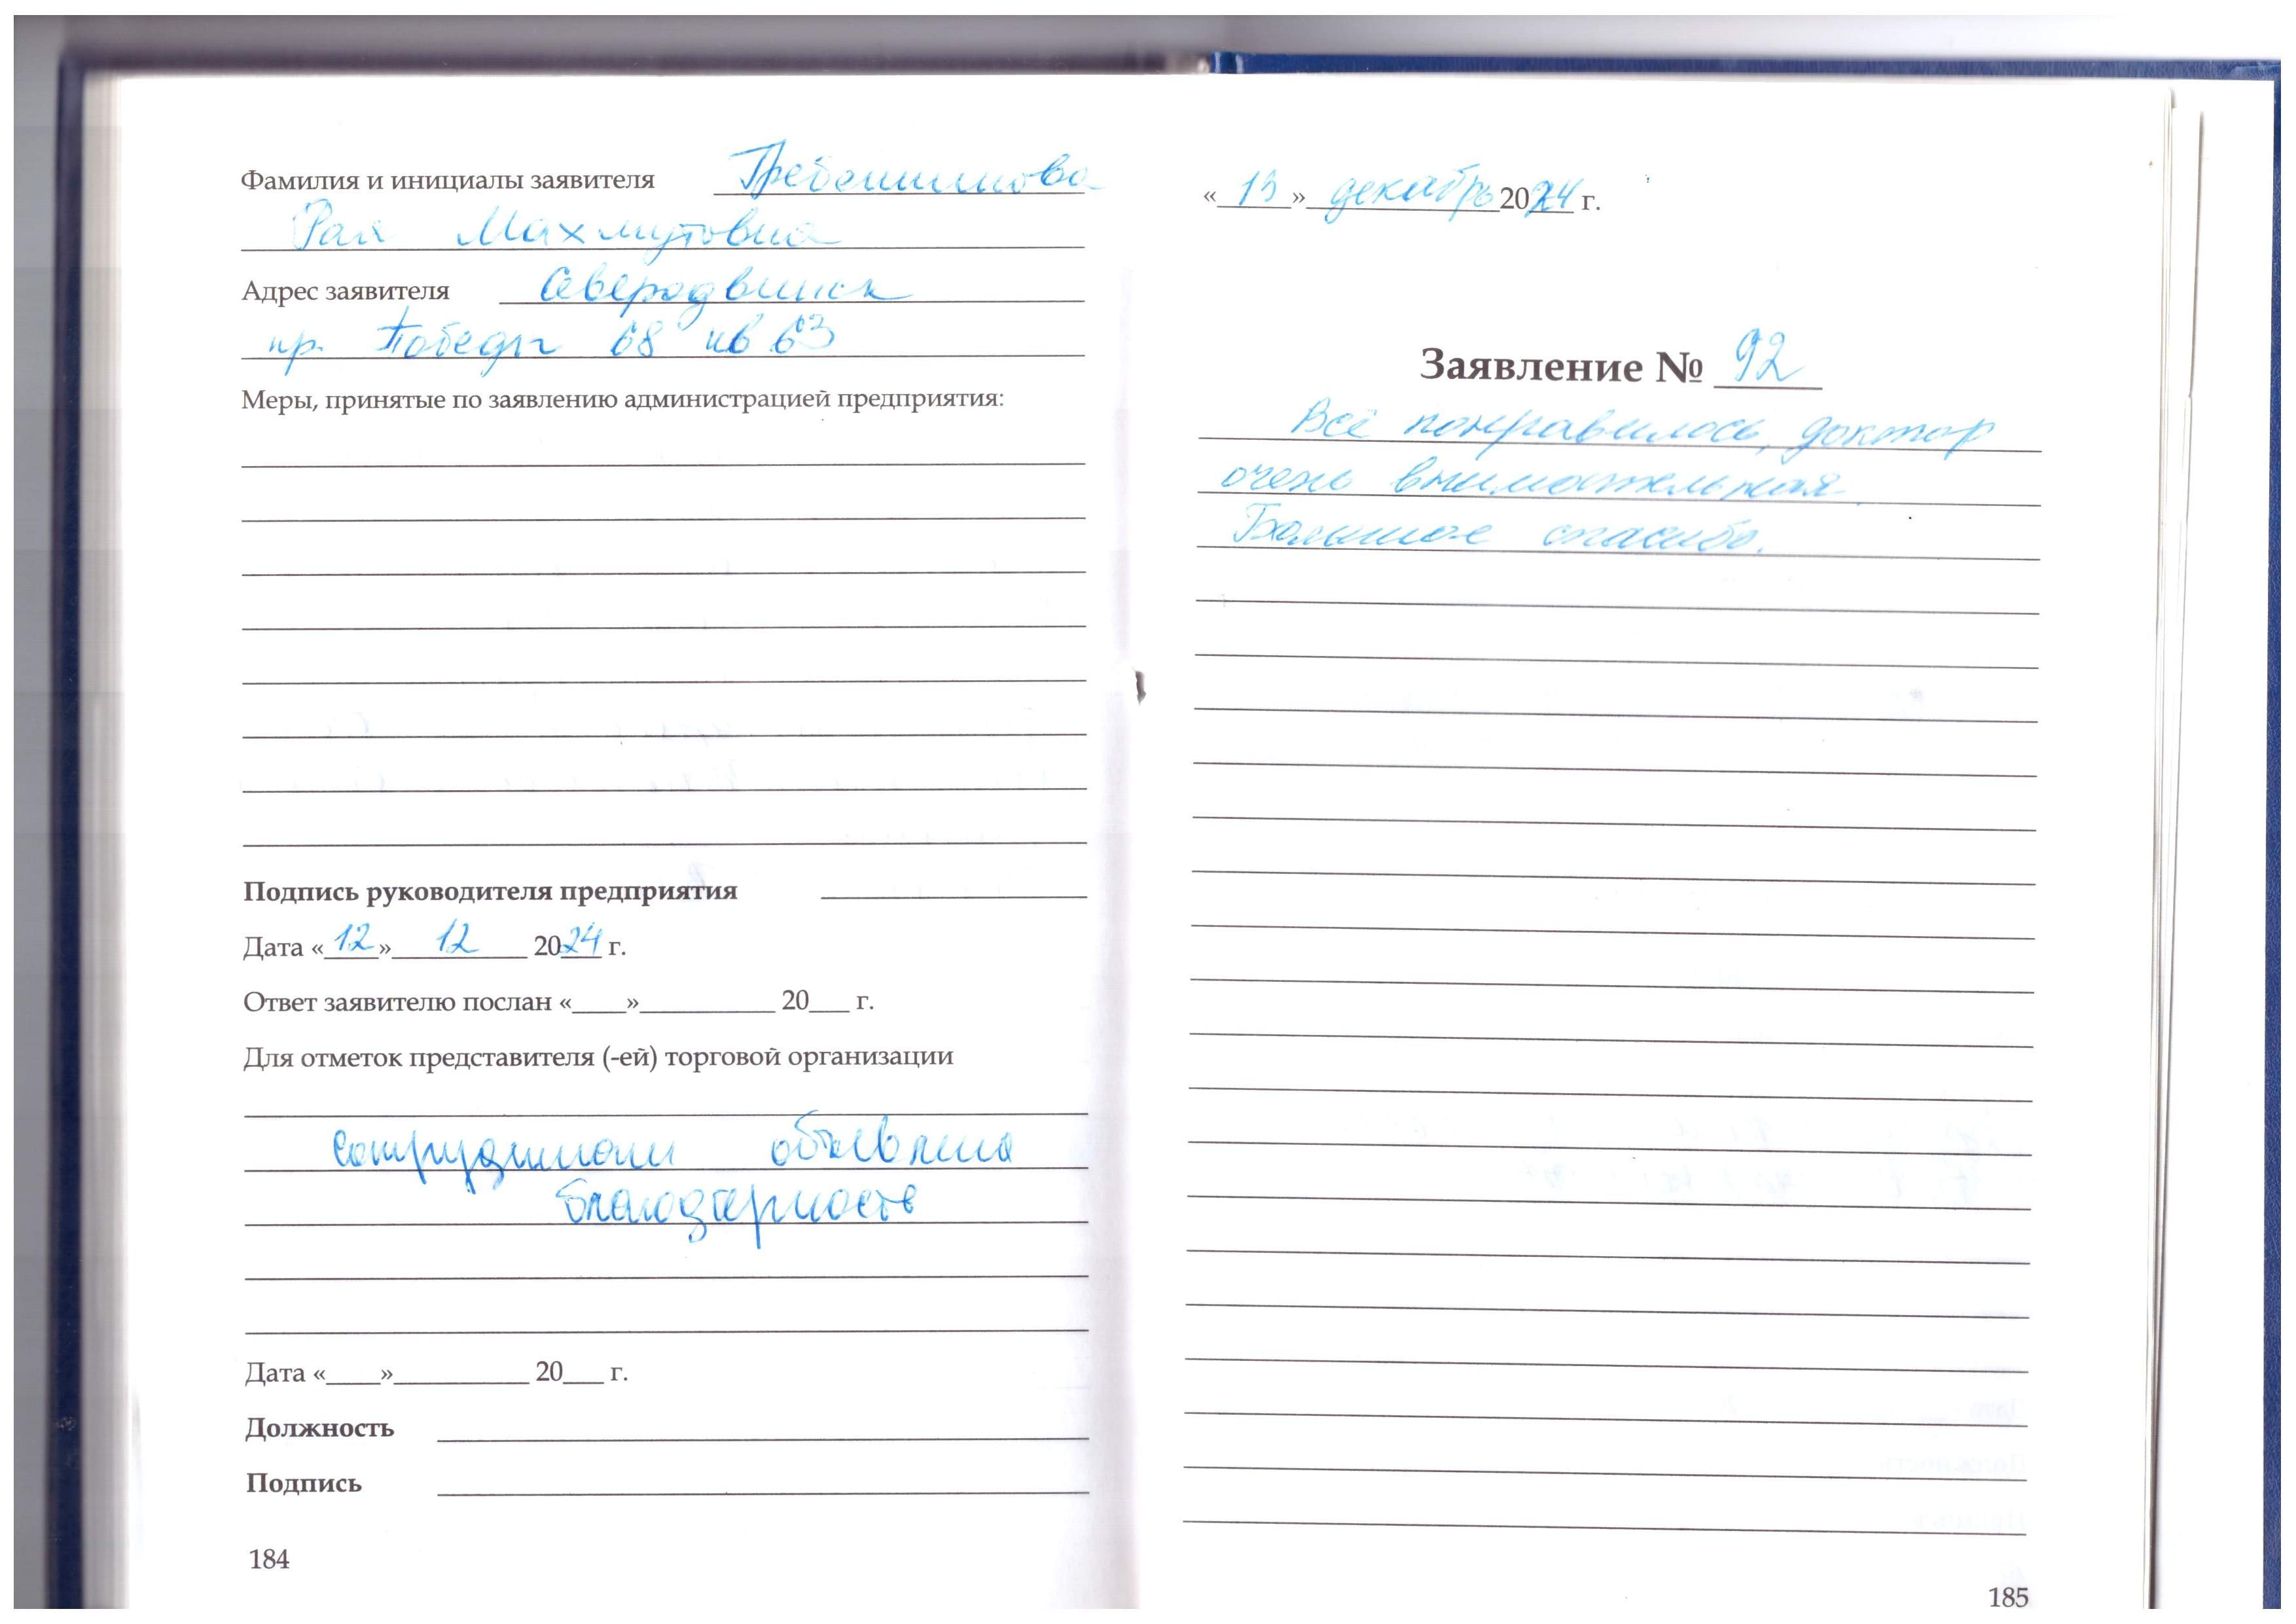 Фамилия и инициалы заявителя Гребенщикова
Рая Махмутовна
Адрес заявителя Северодвинск
пр. Победы 68 кв 63
Меры, принятые по заявлению администрацией предприятия:
Подпись руководителя предприятия
Дата «12» 12 2024 г.
Ответ заявителю послан «____»__________ 20___ г.
Для отметок представителя (-ей) торговой организации
сотрудникам объявлена
благодарность
Дата «____»__________ 20___ г.
Должность
Подпись
184
«13» декабрь 2024 г.
Заявление № 92
Всё понравилось, доктор
очень внимательная.
Большое спасибо.
185